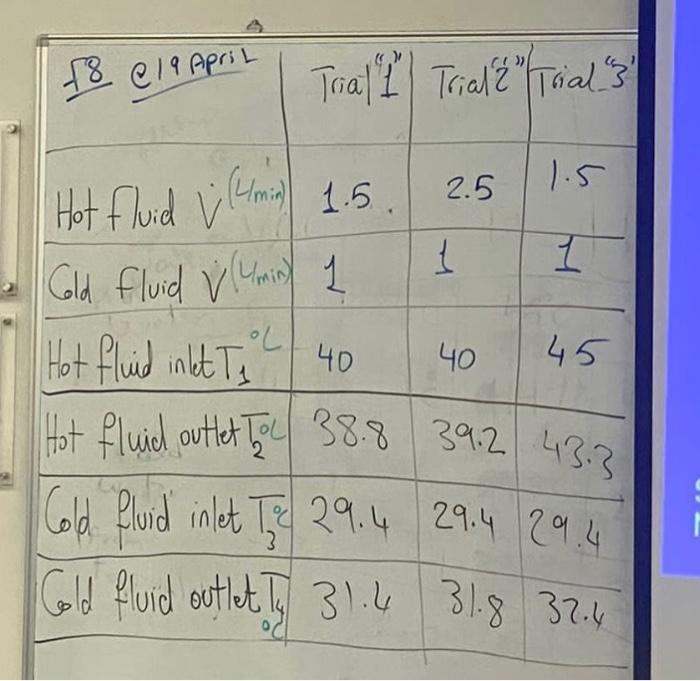 f8 @19 April Trial "1" Trial "2" Trial "3"
Hot fluid V̇ (L/min) 1.5 2.5 1.5
Cold fluid V̇ (L/min) 1 1 1
Hot fluid inlet T₁ °C 40 40 45
Hot fluid outlet T₂ °C 38.8 39.2 43.3
Cold fluid inlet T₃ °C 29.4 29.4 29.4
Cold fluid outlet T₄ °C 31.4 31.8 32.4